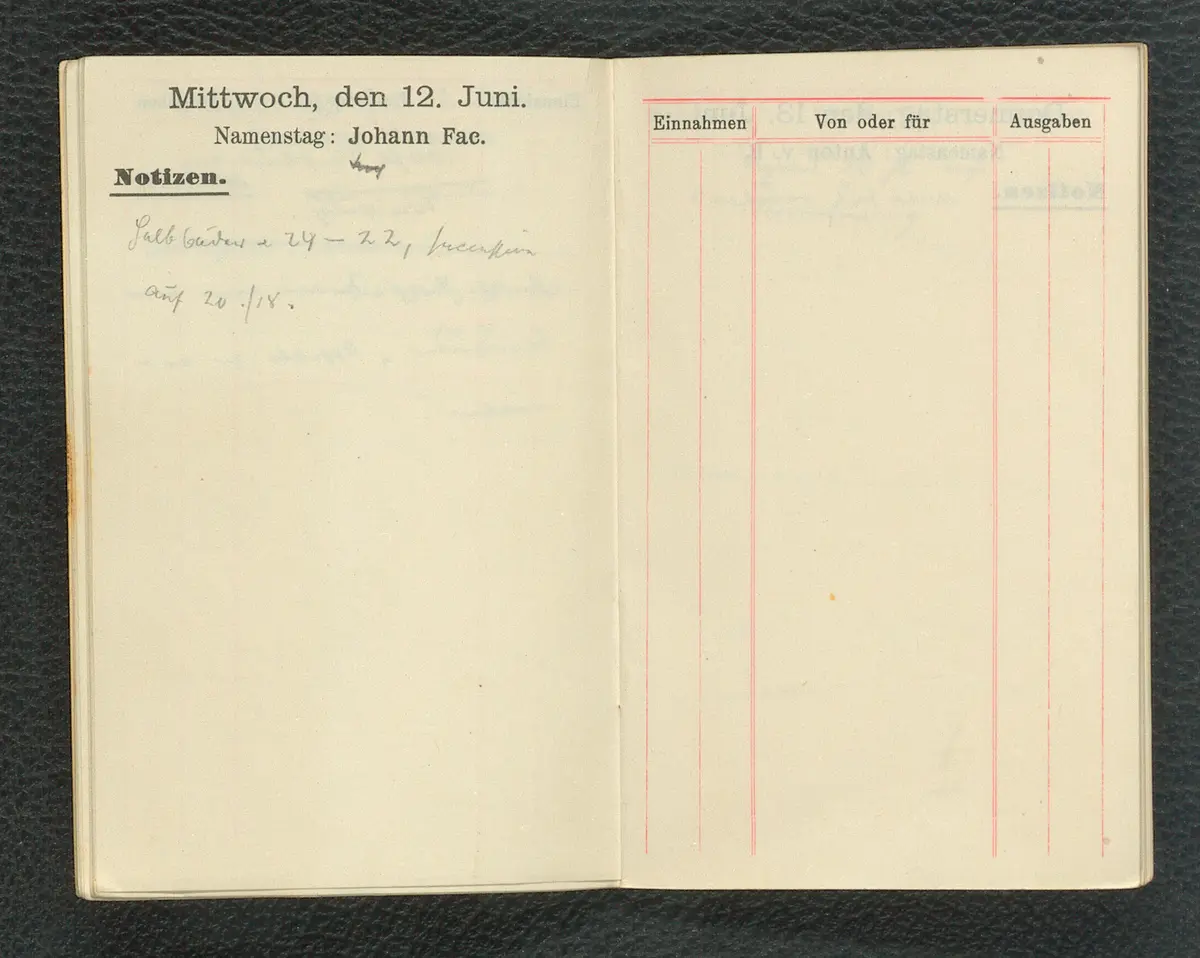 Mittwoch, den 12. Juni.
Namenstag: Johann Fac.
Notizen.
Halbbäder 24 – 22,
auf 20./18.
Einnahmen
Von oder für
Ausgaben